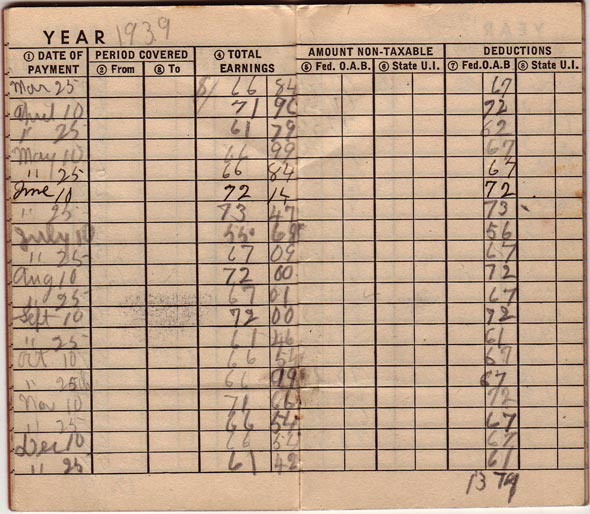 YEAR 1939
① DATE OF PAYMENT PERIOD COVERED ④ TOTAL EARNINGS AMOUNT NON-TAXABLE DEDUCTIONS
② From ③ To ⑤ Fed. O.A.B. ⑥ State U.I. ⑦ Fed. O.A.B ⑧ State U.I.
Mar 25 $ 66 84 67
April 10 71 96 72
" 25 61 79 62
May 10 66 99 67
" 25 66 84 67
June 10 72 14 72
" 25 73 47 73
July 10 55 69 56
" 25 67 09 67
Aug 10 72 00 72
" 25 67 01 67
Sept 10 72 00 72
" 25 61 46 61
Oct 10 66 54 67
" 25 66 99 67
Nov 10 71 66 72
" 25 66 54 67
Dec 10 66 54 67
" 25 61 42 61
13 79